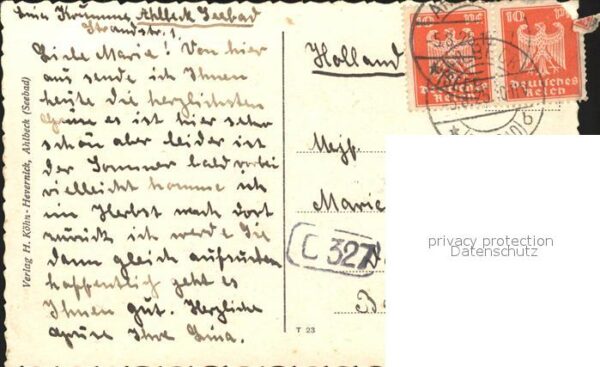 Krumme, Ahlbeck Seebad
Strandstr. 1.
Liebe Marie! Von hier
aus sende ich Ihnen
heute die herzlichsten
Grüsse es ist hier sehr
schön aber leider ist
der Sommer bald vorbei
vielleicht komme ich
im Herbst nach dort
zurück ich werde Sie
dann gleich aufsuchen
hoffentlich geht es
Ihnen gut. Herzliche
Grüsse Ihre Lina.
Verlag H. Köhn-Hevernick, Ahlbeck (Seebad)
Holland
10 Pf 10 Pf
Deutsches Reich Deutsches Reich
b
Mejf.
Marie
C 327
T 23
privacy protection
Datenschutz